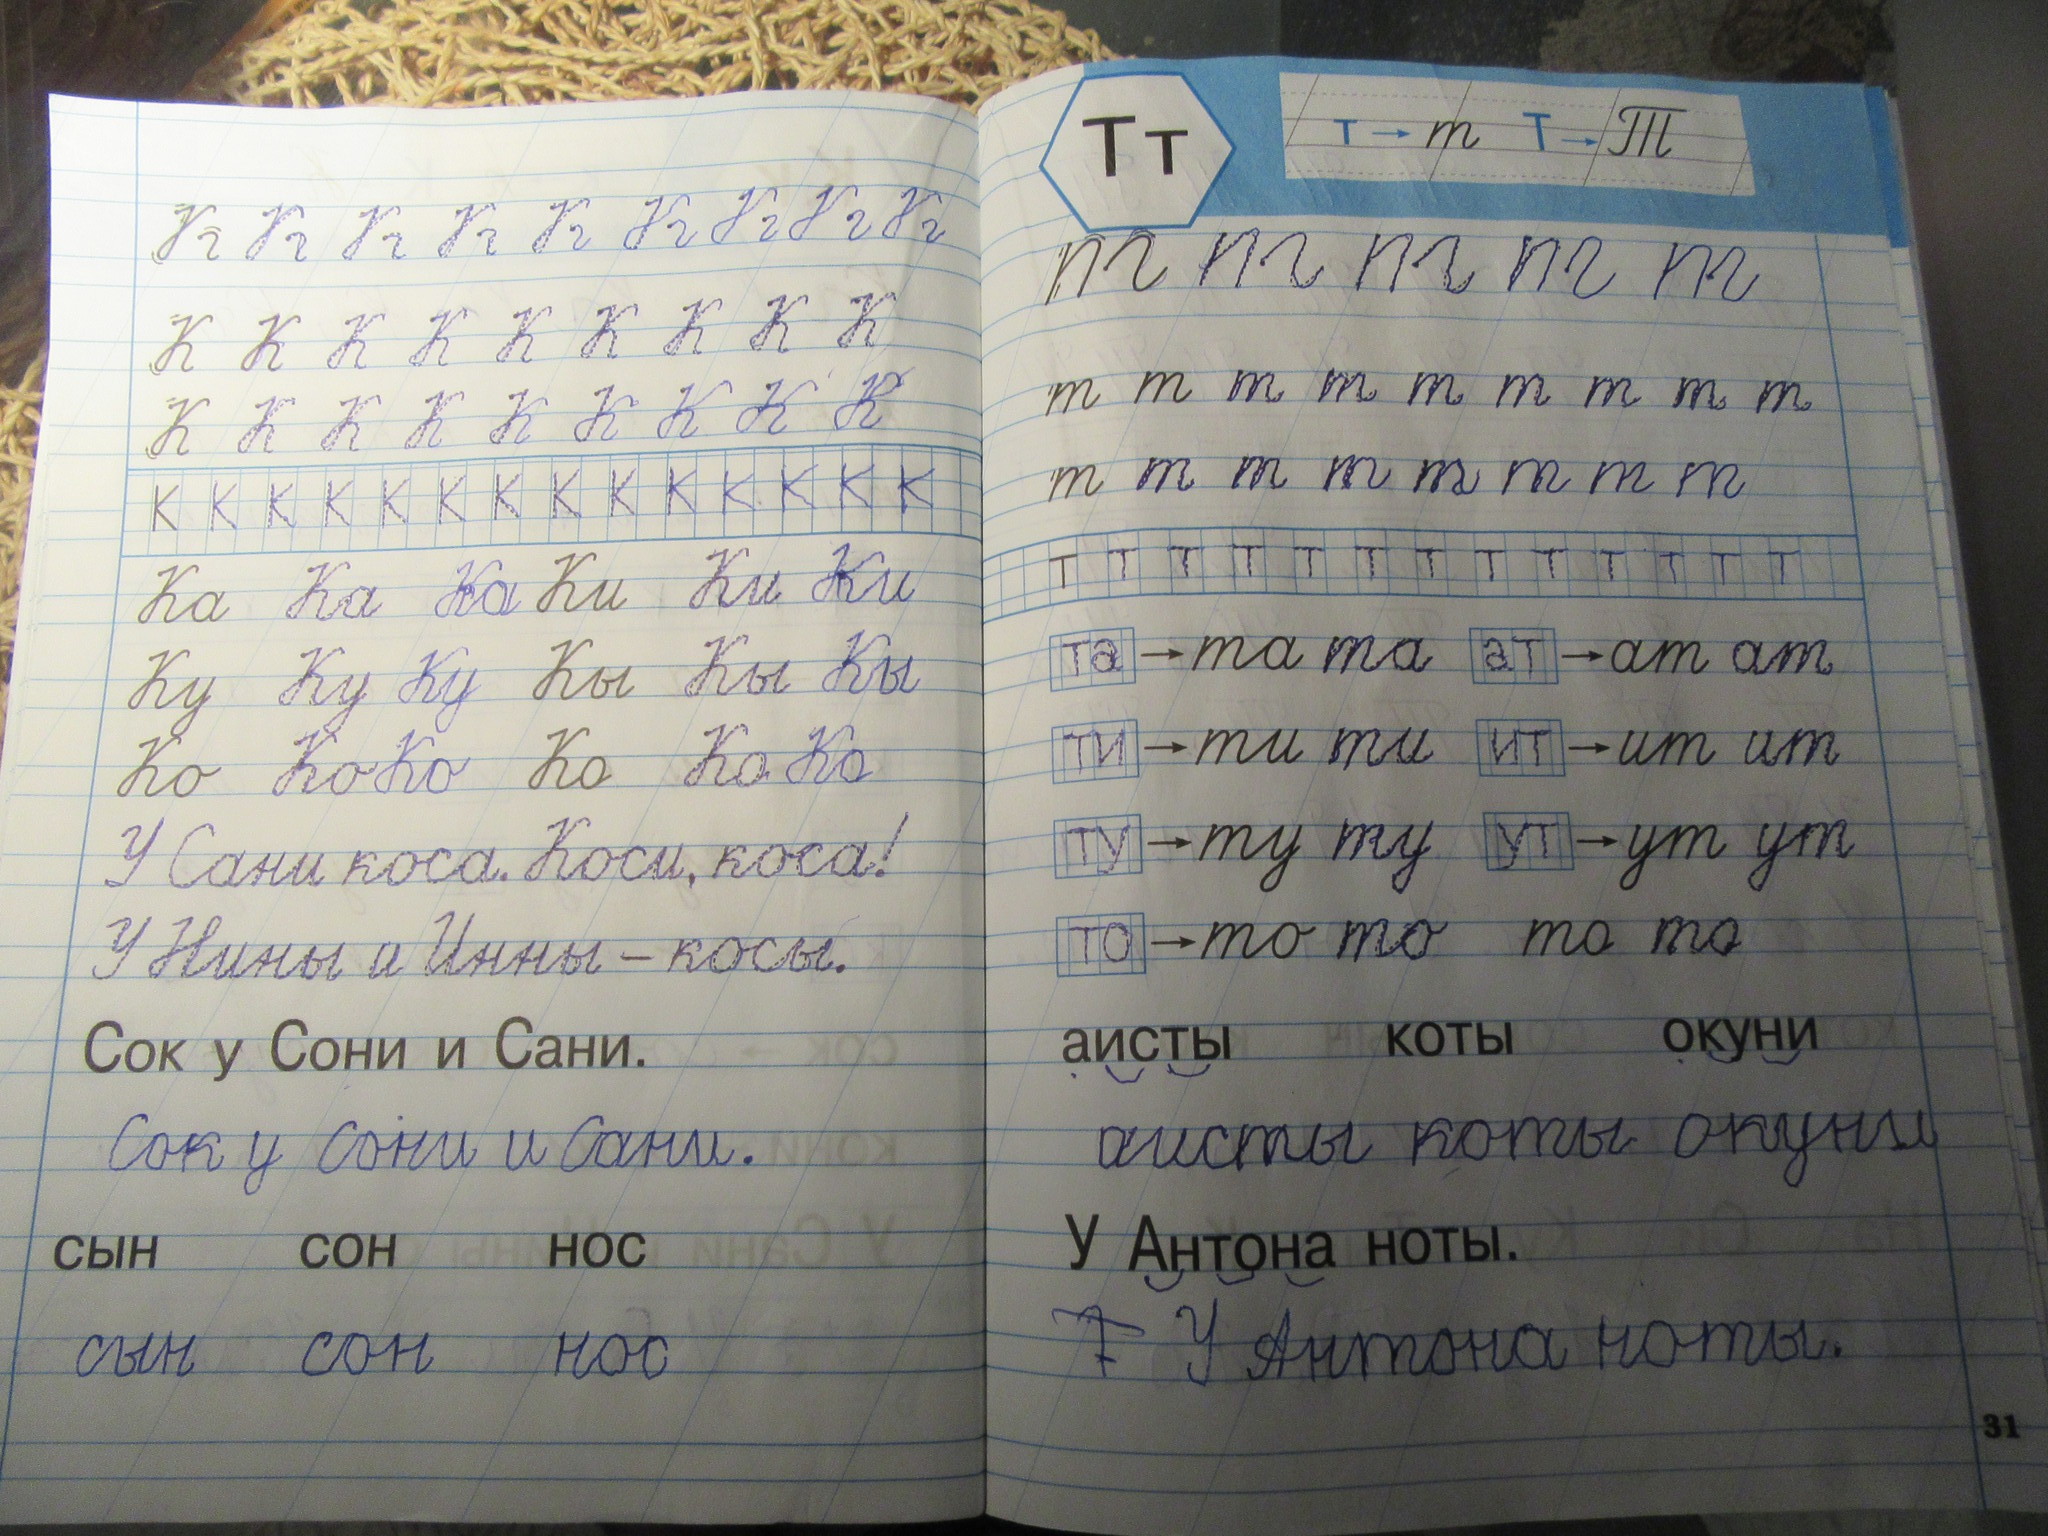 К К К К К К К К К
К К К К К К К К К
К К К К К К К К К К К К К К
Ка Ка Ка Ки Ки Ки
Ку Ку Ку Кы Кы Кы
Ко Ко Ко Ко Ко Ко
У Сани коса. Коси, коса!
У Нины и Инны – косы.
Сок у Сони и Сани.
Сок у Сони и Сани.
сын сон нос
сын сон нос
Т т т → т Т → Т
т т т т т т т т т
т т т т т т т т
Т Т Т Т Т Т Т Т Т Т Т Т Т
та → та та ат → ат ат
ти → ти ти ит → ит ит
ту → ту ту ут → ут ут
то → то то то то
аисты коты окуни
аисты коты окуни
У Антона ноты.
У Антона ноты.
31